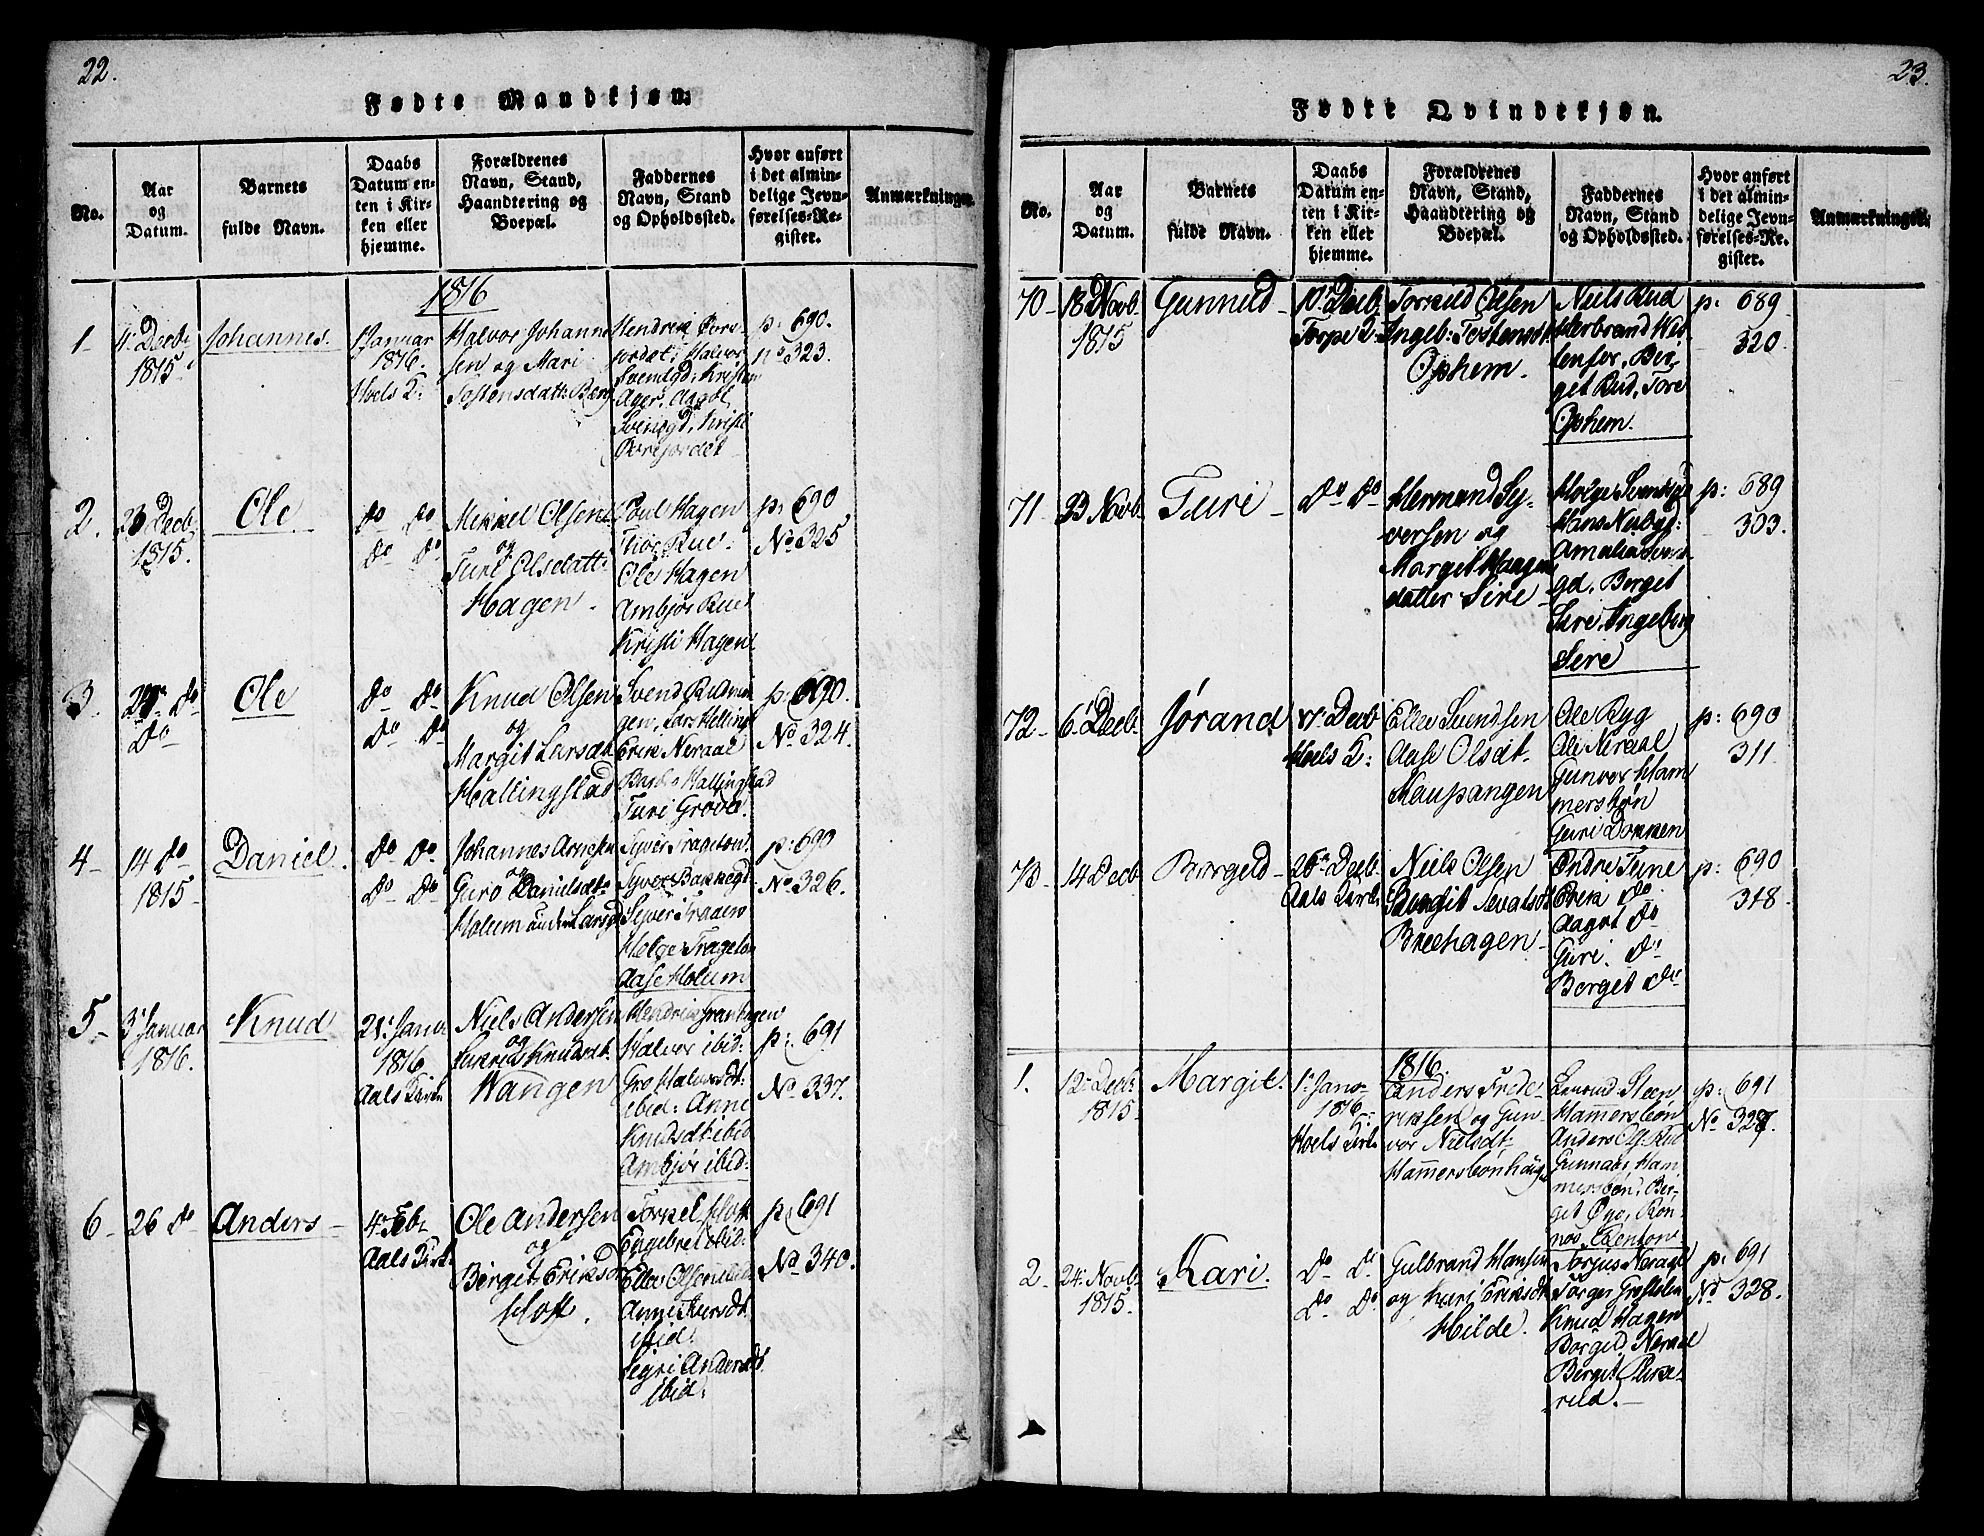 22.
Fødte Mandkjøn.
No.
Aar
og
Datum.
Barnets
fulde Navn.
Daabs
Datum en-
ten i Kir-
ken eller
hjemme.
Forældrenes
Navn, Stand,
Haandtering og
Boepæl.
Faddernes
Navn, Stand
og Opholdssted.
Hvor anført
i det almin-
delige Jevn-
førelses-Re-
gister.
Anmærkninger.
1816
1
11. Decbr
1815.
Johannes.
1 Januar
1816.
Hoels K:
Halvor Johanne
sen og Mari
Tostensdatt: Berg
Hendrik
jordet, Halvor
Svendgd: Kristen
Ager. Aagot
Svensgd, Kristi
Borejordet
p: 690.
No 323.
2.
Decbr
1815.
Ole
do do
do do
Mikkel Olsen
og
Turi Olsdatt:
Hagen
Poul Hagen
Thor Rue
Ole Hagen
Ambjør Rue
Kristi Hagen
p: 690
No 325
3.
do
do
Ole
do do
do do
Knud Olsen
og
Margit Larsdt
Hallingstad
Svend Rudmin
gen, Lars Halling
Erik Neraal
Hallingstad
Turi Grove.
p: 690.
No 324.
4
14 do
1815
Daniel.
do do
do do
Johannes Arnesen
og
Guro Danielsdt
Holum under Larsgd
Syver Trageton
Syver Bakkegd
Syver Traaen
Helge Trageton
Aase Holum
p: 690
No 326.
5
3 Januar
1816.
Knud
21. Janu
1816
Aals Kirk
Niels Andersen
og
Knudsdt.
Wangen
Hendrik
Halvor ibid:
Gro Halvorsdt:
ibid: Anne
Knudsdt: ibid
Ambjør ibid:
p: 691
No 337.
6
26 do
Anders
4 Feb:
Aals Kirk
Ole Andersen
og
Birgit Eriksd
Hoft.
Torkel Hoft
Engebret ibid:
Ellev Olsen ibid
Anne
ibid.
Segri Andersdt
ibid.
p: 691
No 340.
23.
Fødte Qvindekjøn.
No.
Aar
og
Datum.
Barnets
fulde Navn.
Daabs
Datum en-
ten i Kir-
ken eller
hjemme.
Forældrenes
Navn, Stand,
Haandtering og
Boepæl.
Faddernes
Navn, Stand
og Opholdssted.
Hvor anført
i det almin-
delige Jevn-
førelses-Re-
gister.
Anmærkninger.
70
18 Novb
1815
Gunnild
10 Decb.
Torpe K:
Torkild Olsen
Ingeb: Tostensdt
Ophem.
Niels Rud
Herbrand
Ber-
get Rud, Tore
Ophem.
p: 689
320
71
23 Novb
Turi
do do
Hermand Sy-
versen og
Margit Haagens
datter Sire
Helge Svensgd
Hans Nubgd:
Amalia Svens
gd, Berget
Sire, Ingeborg
Sire
p: 689
303.
72
6 Decb.
Jørand
17. Decb
Hoels K:
Ellev Svendsen
Aase Olsdt
Kaupangen
Ole Ryg
Ole Neraal
Gunvor Ham
mersbøn
Guri Dokken
p: 690
311
73
14 Decb
Børgeld
26 Decb.
Aals Kirk
Niels Olsen
Birgit Sevatsdt
Breehagen
Endre Tune
Erik do
Aagot do
Guri. do
Berget do
p: 690
318
1816.
1.
12 Decb:
1815
Margit.
1. Janr
1816.
Hoels Kirk
Anders Fride-
riksen og Gun-
vor Nielsdt
Hammersbønhaug
Steen
Hammersbøn
Anders
Gunnar Ham
mersbøn, Ber-
get Øyo, Røn-
nos
p: 691
No 327.
2
24. Novb
1815.
Kari.
do do
do do
Gulbrand Hansen
og Kari Eriksdt
Hilde.
Torjus Neraal
Torger
Knud Hagen
Borgild Neraal
Berget
rud.
p: 691
No 328.